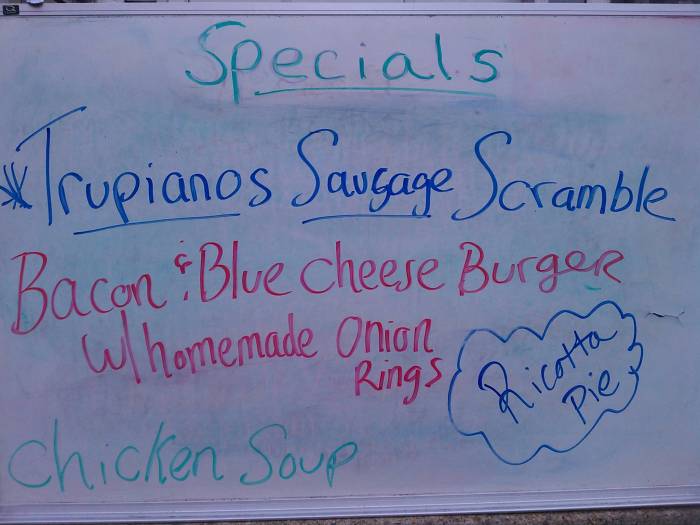 Specials
*Trupianos Sausage Scramble
Bacon & Blue Cheese Burger
w/homemade Onion
Rings
Ricotta
Pie
Chicken Soup